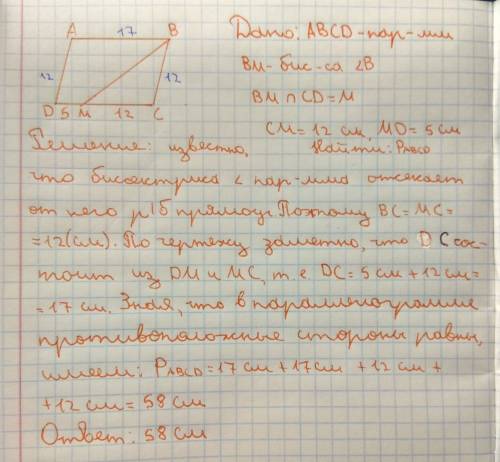 A 17 B
12 12
D 5 M 12 C
Дано: ABCD-пар-мм
BM-бис-са ∠B
BM ∩ CD = M
CM = 12 см, MD = 5 см
Решение: известно, Найти: PABCD
что биссектриса ∠ пар-мма отсекает
от него р/б Поэтому BC = MC =
= 12(см). По чертежу заметно, что DC сос-
тоит из DM и MC, т.е. DC = 5 см + 12 см =
= 17 см. Зная, что в параллелограмме
противоположные стороны равны,
имеем: PABCD = 17 см + 17 см + 12 см +
+ 12 см = 58 см
Ответ: 58 см